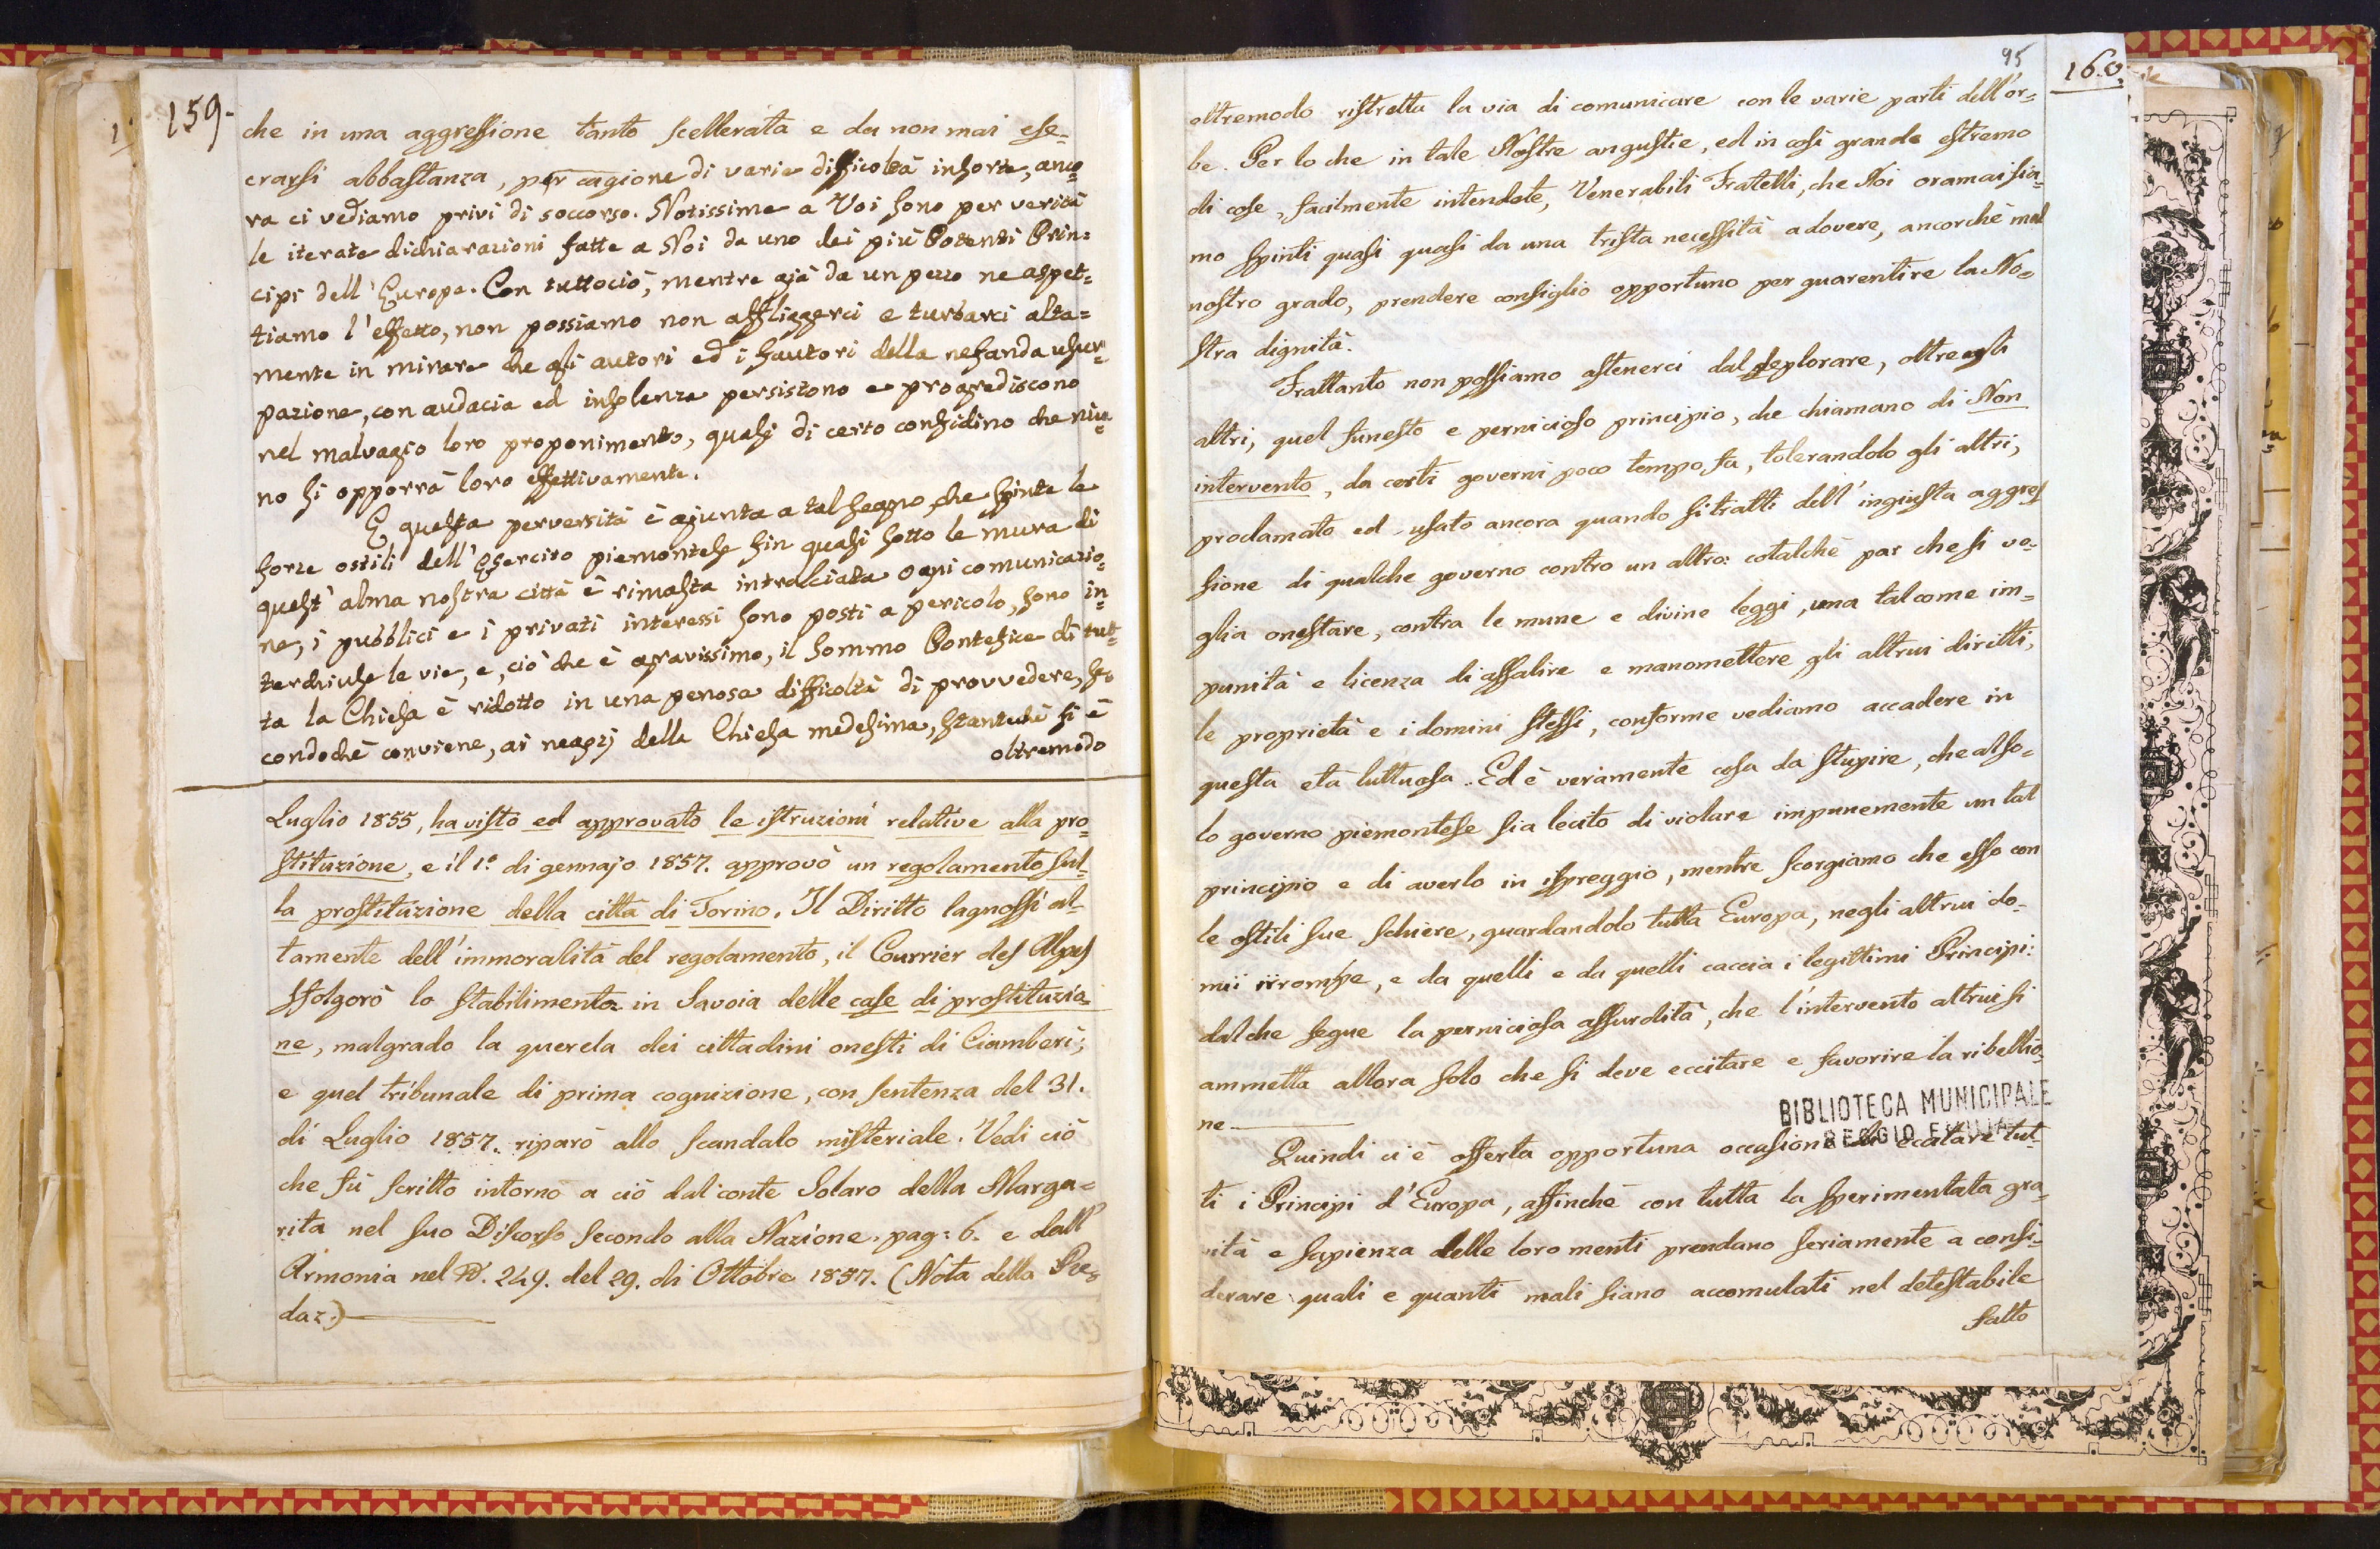 159.
che in una aggressione tanto scellerata e da non mai ese=
crarsi abbastanza, per cagione di varie difficoltà insorte, anco=
ra ci vediamo privi di soccorso. Notissime a Voi sono per verità
le iterate dichiarazioni fatte a Noi da uno dei più Potenti Prin=
cipi dell'Europa. Con tuttociò, mentre già da un pezzo ne aspet=
tiamo l'effetto, non possiamo non affliggerci e turbarci alta=
mente in mirare che gli autori ed i fautori della nefanda usur=
pazione, con audacia ed insolenza persistono e progrediscono
nel malvagio loro proponimento, quasi di certo confidino che niu=
no si opporrà loro effettivamente.
E questa perversità è giunta a tal segno, che spinte le
forze ostili dell'Esercito piemontese fin quasi sotto le mura di
quest'alma nostra città è rimasta intralciata ogni comunicazio=
ne, i pubblici e i privati interessi sono posti a pericolo, sono in=
terchiuse le vie, e, ciò che è gravissimo, il Sommo Pontefice di tut=
ta la Chiesa è ridotto in una penosa difficoltà di provvedere, se=
condochè conviene, ai negozj della Chiesa medesima, stantechè si è
oltremodo
Luglio 1855, ha visto ed approvato le istruzioni relative alla pro=
stituzione, e il 1.° di gennajo 1857. approvò un regolamento sul=
la prostituzione della città di Torino. Il Diritto lagnossi al=
tamente dell'immoralità del regolamento, il Courrier des Alpes
sfolgorò lo stabilimento in Savoia delle case di prostituzio=
ne, malgrado la querela dei cittadini onesti di Ciamberì;
e quel tribunale di prima cognizione, con sentenza del 31.
di Luglio 1857. riparò allo scandalo misteriale. Vedi ciò
che fù scritto intorno a ciò dal conte Solaro della Marga=
rita nel suo Discorso secondo alla Nazione. pag: 6. e dall'
Armonia nel N. 249. del 29. di Ottobre 1857. (Nota della Re=
daz.)
95
160.
oltremodo ristretta la via di comunicare con le varie parti dell'or=
be. Per lo che in tale Nostre angustie, ed in così grande estremo
di cose, facilmente intendete, Venerabili Fratelli, che Noi oramai sia=
mo spinti quasi quasi da una trista necessità a dovere, ancorchè mal
nostro grado, prendere consiglio opportuno per guarentire la No=
stra dignità.
Frattanto non possiamo astenerci dal deplorare, oltre agli
altri, quel funesto e pernicioso principio, che chiamano di Non
intervento, da certi governi poco tempo fa, tolerandolo gli altri,
proclamato ed usato ancora quando si tratti dell'ingiusta aggres
sione di qualche governo contro un altro: cotalchè par che si vo=
glia onestare, contra le mune e divine leggi, una tal come im=
punità e licenza di assalire e manomettere gli altrui diritti,
le proprietà e i domini stessi, conforme vediamo accadere in
questa età luttuosa. Ed è veramente cosa da stupire, che al so=
lo governo piemontese sia lecito di violare impunemente un tal
principio e di averlo in ispreggio, mentre scorgiamo che esso con
le ostili sue schiere, guardandolo tutta Europa, negli altrui do=
mii irrompe, e da quelli e da quelli caccia i legittimi Principi:
dal che segue la perniciosa assurdità, che l'intervento altrui si
ammetta allora solo che si deve eccitare e favorire la ribellio=
ne
BIBLIOTECA MUNICIPALE
REGGIO EMILIA
Quindi ci è offerta opportuna occasione di eccitare tut=
ti i Principi d'Europa, affinchè con tutta la sperimentata gra=
vità e sapienza delle loro menti prendano seriamente a consi=
derare quali e quanti mali siano accomulati nel detestabile
fatto